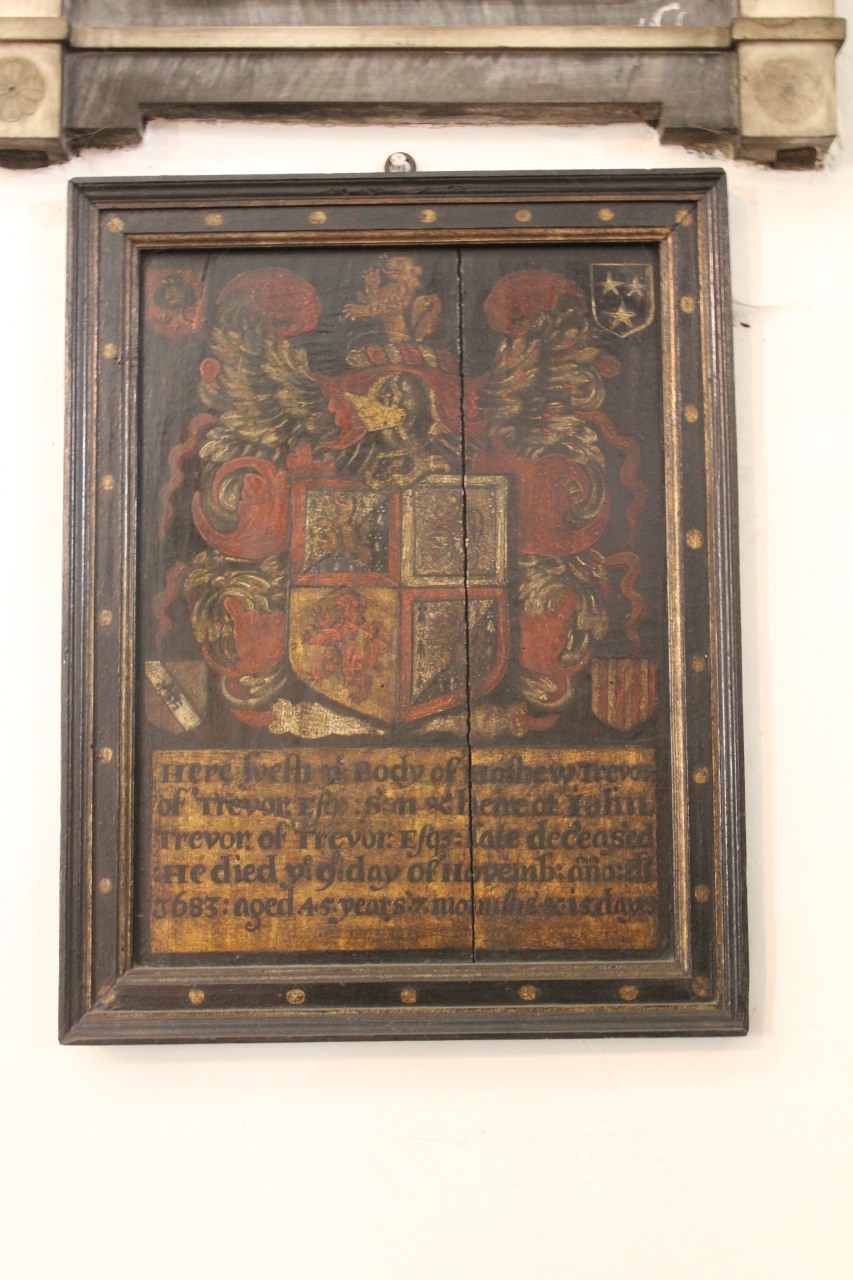 Here lyeth yͤ Body of Mathew Trevor
of Trevor Esqr: son & heire of Iohn
Trevor of Trevor Esqr: late deceased
He died yͤ 9: day of Novemb: año: dī
1683: aged 45 years 7 months & 15 days